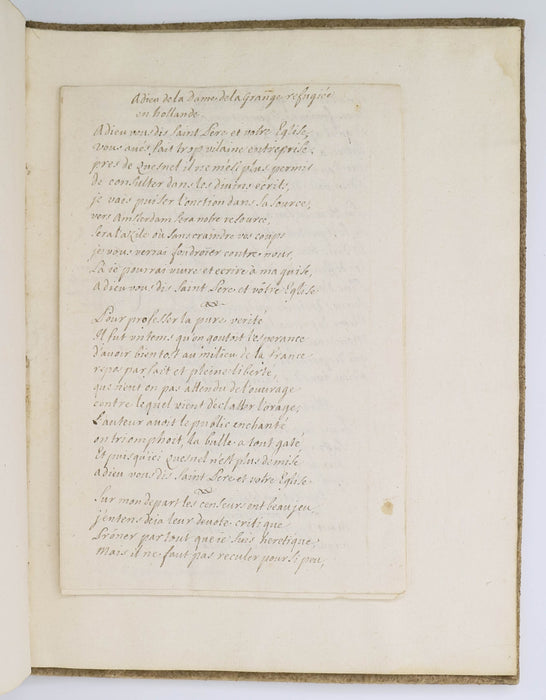 Adieu de la Dame de la Grange refugiée
en hollande.
Adieu vous dis saint Pere et vôtre Eglise,
vous avés fait trop vilaine entreprise.
pres de Quesnel il ne m'est plus permis
de consulter dans les divins ecrits,
je vais puiser l'onction dans sa source,
vers Amsterdam sera notre resource,
sera l'azile où sans craindre vos coups
je vous verrai foudroier contre nous,
Là ie pourrai vivre et ecrire à ma guise,
Adieu vous dis saint Pere et vôtre Eglise
Pour professer la pure verité
Il fut un tems qu'on goutoit l'esperance
d'avoir bientost au milieu de la france
repos parfait et pleine liberté,
que n'eut on pas attendu de l'ouvrage
contre lequel vient d'eclatter l'orage,
L'auteur avoit le public enchanté
on triomphoit, la bulle a tout gaté
Et puisqu'ici Quesnel n'est plus de mise
Adieu vous dis saint Pere et votre Eglise
Sur mon depart les censeurs ont beau jeu,
j'entens deja leur devote critique
Prôner par tout que ie suis heretique,
Mais il ne faut pas reculer pour si peu,